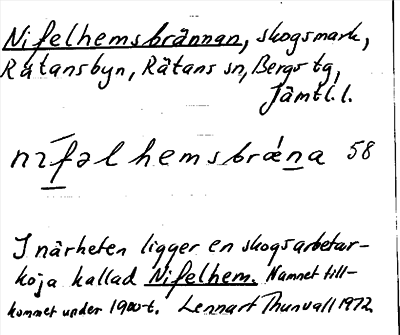 Nifelhemsbrännan, skogsmark,
Rätansbyn, Rätans sn, Bergs tg,
Jämtl. l.
nīfəlhemsbrǽna 58
I närheten ligger en skogsarbetar-
koja kallad Nifelhem. Namnet till-
kommet under 1900-t. Lennart Thunvall 1972